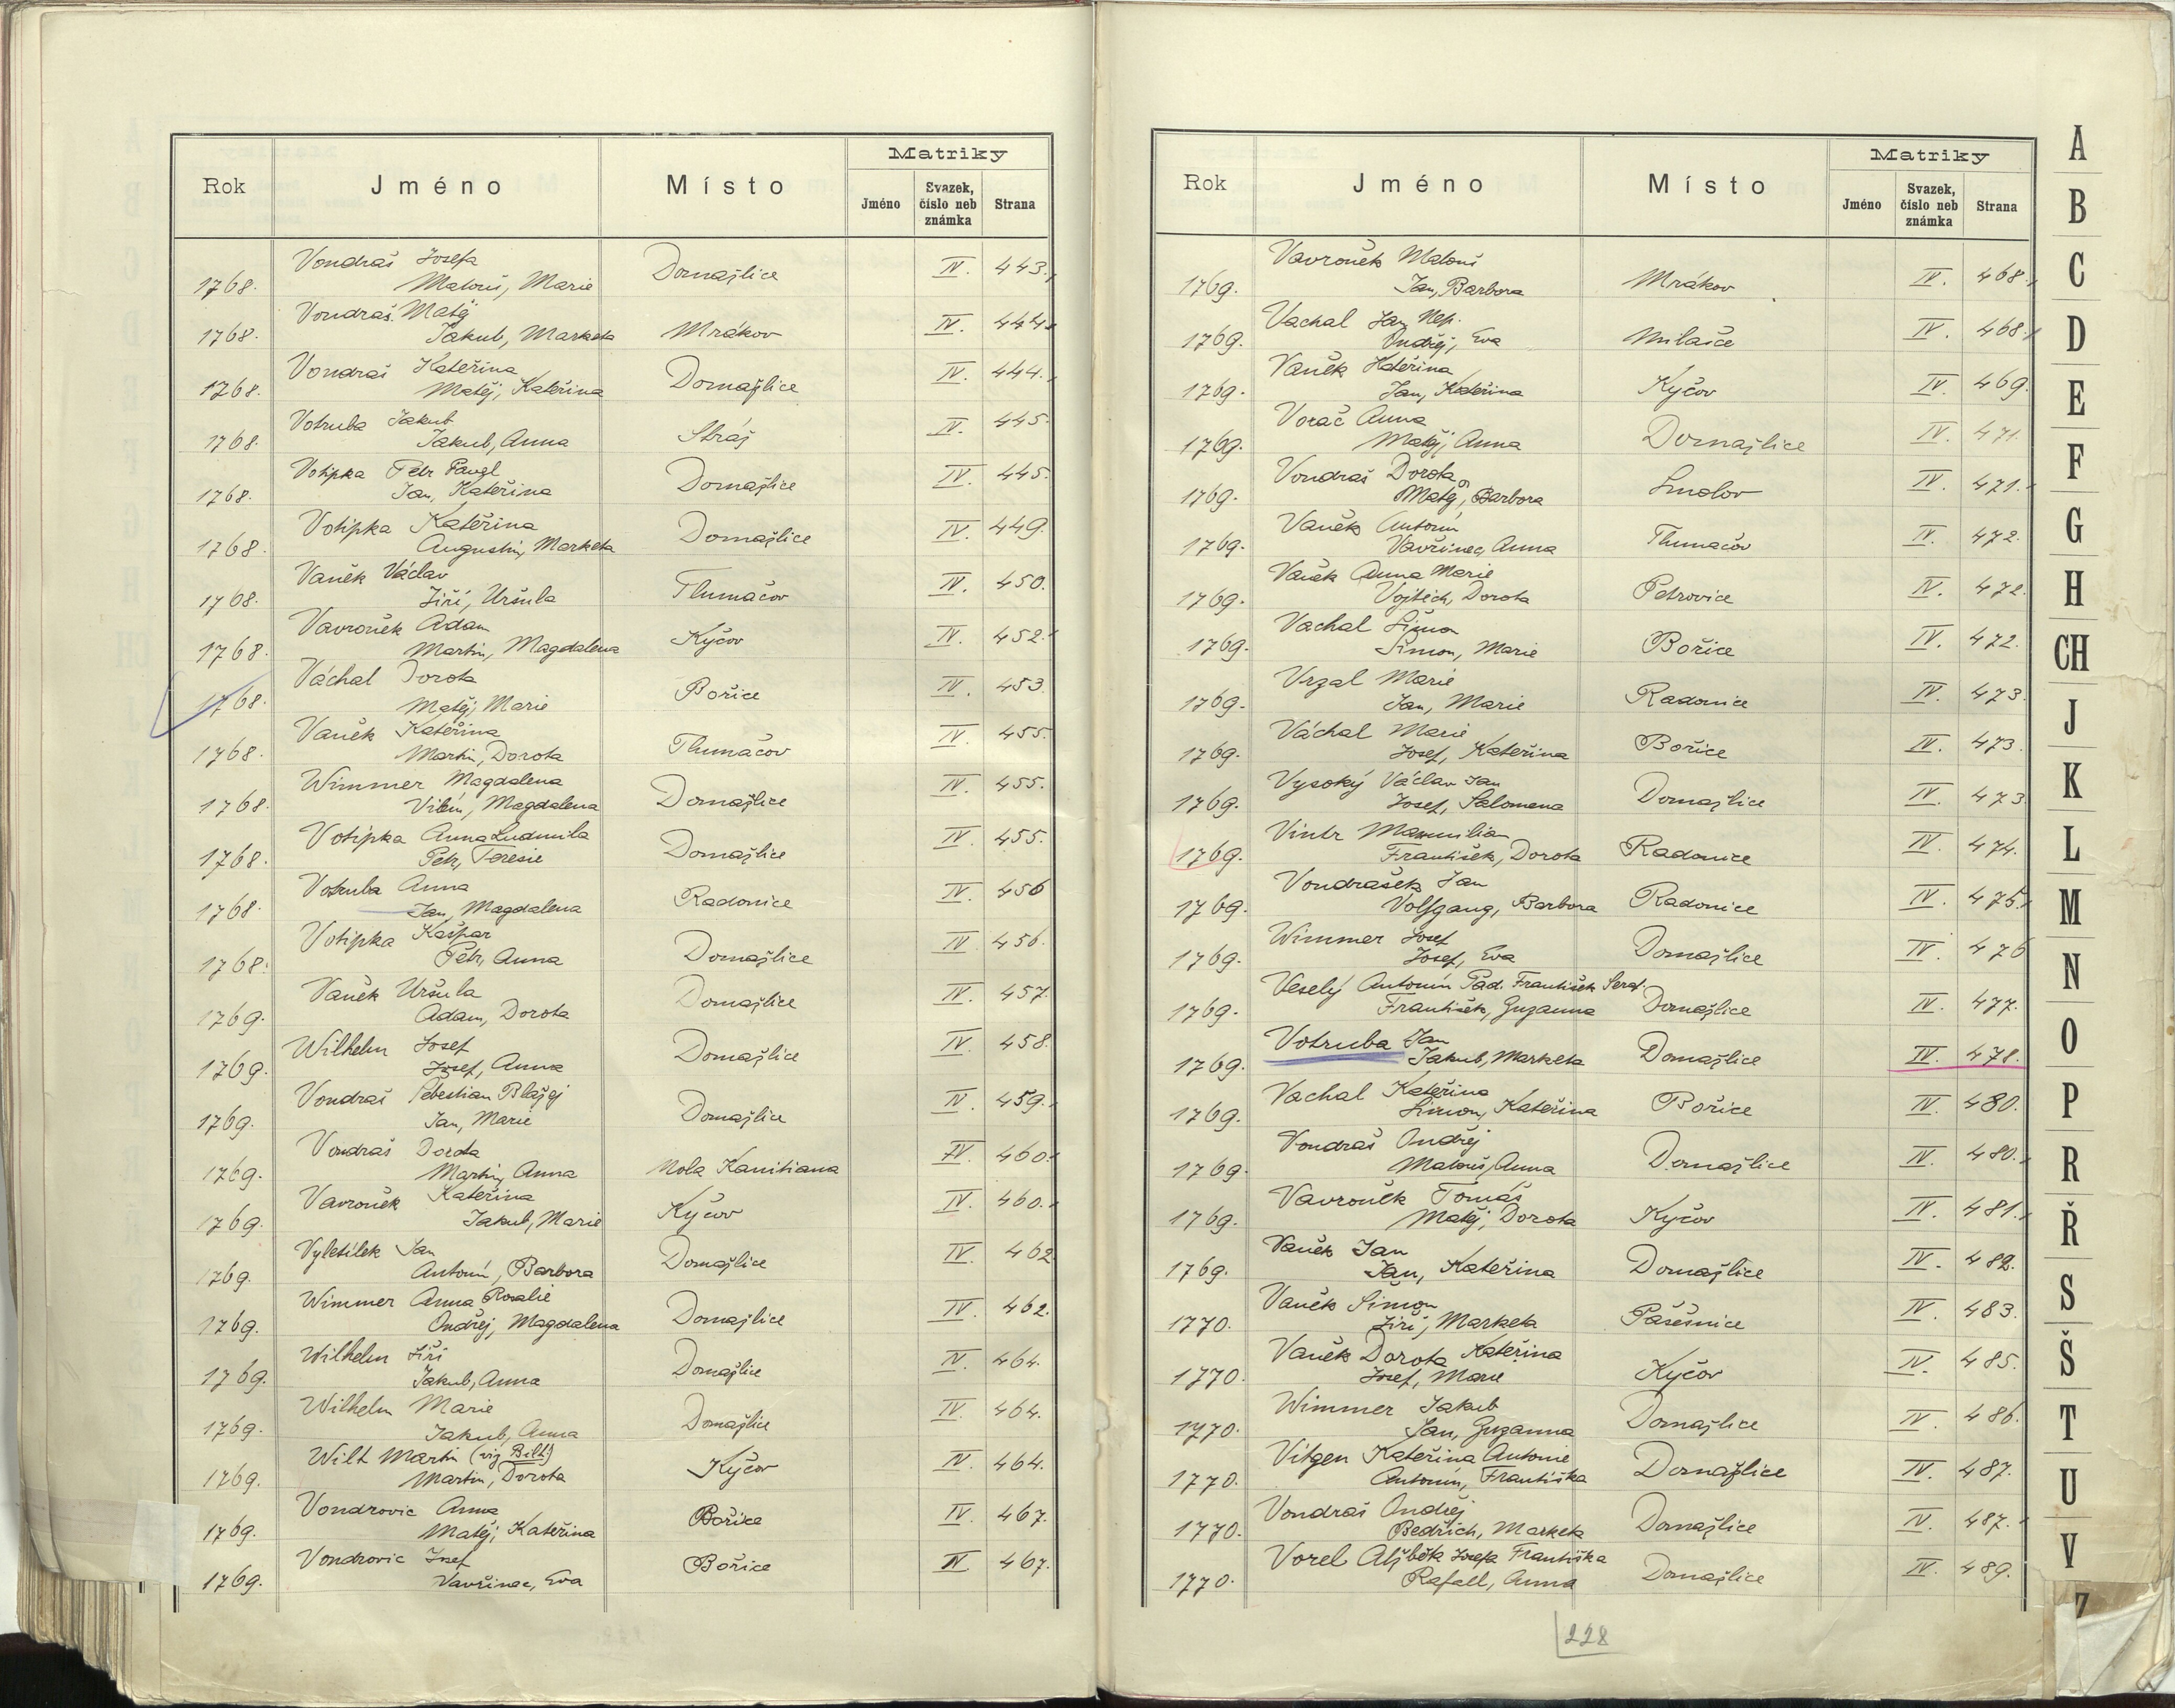 Matriky
Rok Jméno Místo Jméno Svazek, číslo neb známka Strana
Vondraš Josefa
1768. Matouš, Marie Domažlice IV. 443.
Vondraš Matěj
1768. Jakub, Marketa Mrákov IV. 444.
Vondraš Kateřina
1768. Matěj, Kateřina Domažlice IV. 444.
Votruba Jakub
1768. Jakub, Anna Stráž IV. 445.
Votipka Petr Pavel
1768. Jan, Kateřina Domažlice IV. 445.
Votipka Kateřina
1768. Augustin, Marketa Domažlice IV. 449.
Vaněk Václav
1768. Jiří, Uršula Tlumačov IV. 450.
Vavrouček Adam
1768. Martin, Magdalena Kyčov IV. 452.
Váchal Dorota
1768. Matěj, Marie Bořice IV. 453.
Vaněk Kateřina
1768. Martin, Dorota Tlumačov IV. 455.
Wimmer Magdalena
1768. Vilém, Magdalena Domažlice IV. 455.
Votipka Anna Ludmila
1768. Petr, Teresie Domažlice IV. 455.
Votruba Anna
1768. Jan, Magdalena Radonice IV. 456
Votipka Kašpar
1768. Petr, Anna Domažlice IV. 456.
Vaněk Uršula
1769. Adam, Dorota Domažlice IV. 457.
Wilhelm Josef
1769. Josef, Anna Domažlice IV. 458.
Vondraš Šebestian Blažej
1769. Jan, Marie Domažlice IV. 459.
Vondraš Dorota
1769. Martin, Anna Mola Kanitiana IV. 460.
Vavrouček Kateřina
1769. Jakub, Marie Kyčov IV. 460.
Vyletílek Jan
1769. Antonín, Barbora Domažlice IV. 462
Wimmer Anna Rosalie
1769. Ondřej, Magdalena Domažlice IV. 462.
Wilhelm Jiří
1769. Jakub, Anna Domažlice IV. 464.
Wilhelm Marie
1769. Jakub, Anna Domažlice IV. 464.
Wilt Martin (viz Bilt)
1769. Martin, Dorota Kyčov IV. 464.
Vondrovic Anna
1769. Matěj, Kateřina Bořice IV. 467.
Vondrovic Josef
1769. Vavřinec, Eva Bořice IV 467.
Matriky
Rok Jméno Místo Jméno Svazek, číslo neb známka Strana
Vavrouček Matouš
1769. Jan, Barbora Mrákov IV. 468.
Vachal Jan Nep.
1769. Ondřej, Eva Milače IV. 468.
Vaněk Kateřina
1769. Jan, Kateřina Kyčov IV. 469.
Vorač Anna
1769. Matěj, Anna Domažlice IV. 471.
Vondraš Dorota
1769. Matěj, Barbora Smolov IV. 471.
Vaněk Antonín
1769. Vavřinec, Anna Tlumačov IV. 472.
Vaněk Anna Marie
1769. Vojtěch, Dorota Petrovice IV. 472.
Vachal Šimon
1769. Šimon, Marie Bořice IV. 472.
Vrzal Marie
1769. Jan, Marie Radonice IV. 473.
Váchal Marie
1769. Josef, Kateřina Bořice IV. 473.
Vysoký Václav Jan
1769. Josef, Salomena Domažlice IV. 473.
Vintr Maxmilian
1769. František, Dorota Radonice IV. 474.
Vondrašek Jan
1769. Volfgang, Barbora Radonice IV. 475.
Wimmer Josef
1769. Josef, Eva Domažlice IV. 476
Veselý Antonín Pad. František Seraf.
1769. František, Zuzanna Domažlice IV. 477.
Votruba Jan
1769. Jakub, Marketa Domažlice IV. 478.
Vachal Kateřina
1769. Šimon, Kateřina Bořice IV. 480.
Vondraš Ondřej
1769. Matouš, Anna Domažlice IV. 480.
Vavrouček Tomáš
1769. Matěj, Dorota Kyčov IV. 481.
Vaněk Jan
1769. Jan, Kateřina Domažlice IV. 482.
Vaněk Šimon
1770. Jiří, Marketa Pašešnice IV. 483.
Vaněk Dorota Kateřina
1770. Josef, Marie Kyčov IV. 485.
Wimmer Jakub
1770. Jan, Zuzanna Domažlice IV. 486.
Vitgen Kateřina Antonie
1770. Antonín, Františka Domažlice IV. 487.
Vondraš Ondřej
1770. Bedřich, Marketa Domažlice IV. 487.
Vorel Alžběta Josefa Františka
1770. Rafael, Anna Domažlice IV. 489.
228
A
B
C
D
E
F
G
H
CH
J
K
L
M
N
O
P
R
Ř
S
Š
T
U
V
Z